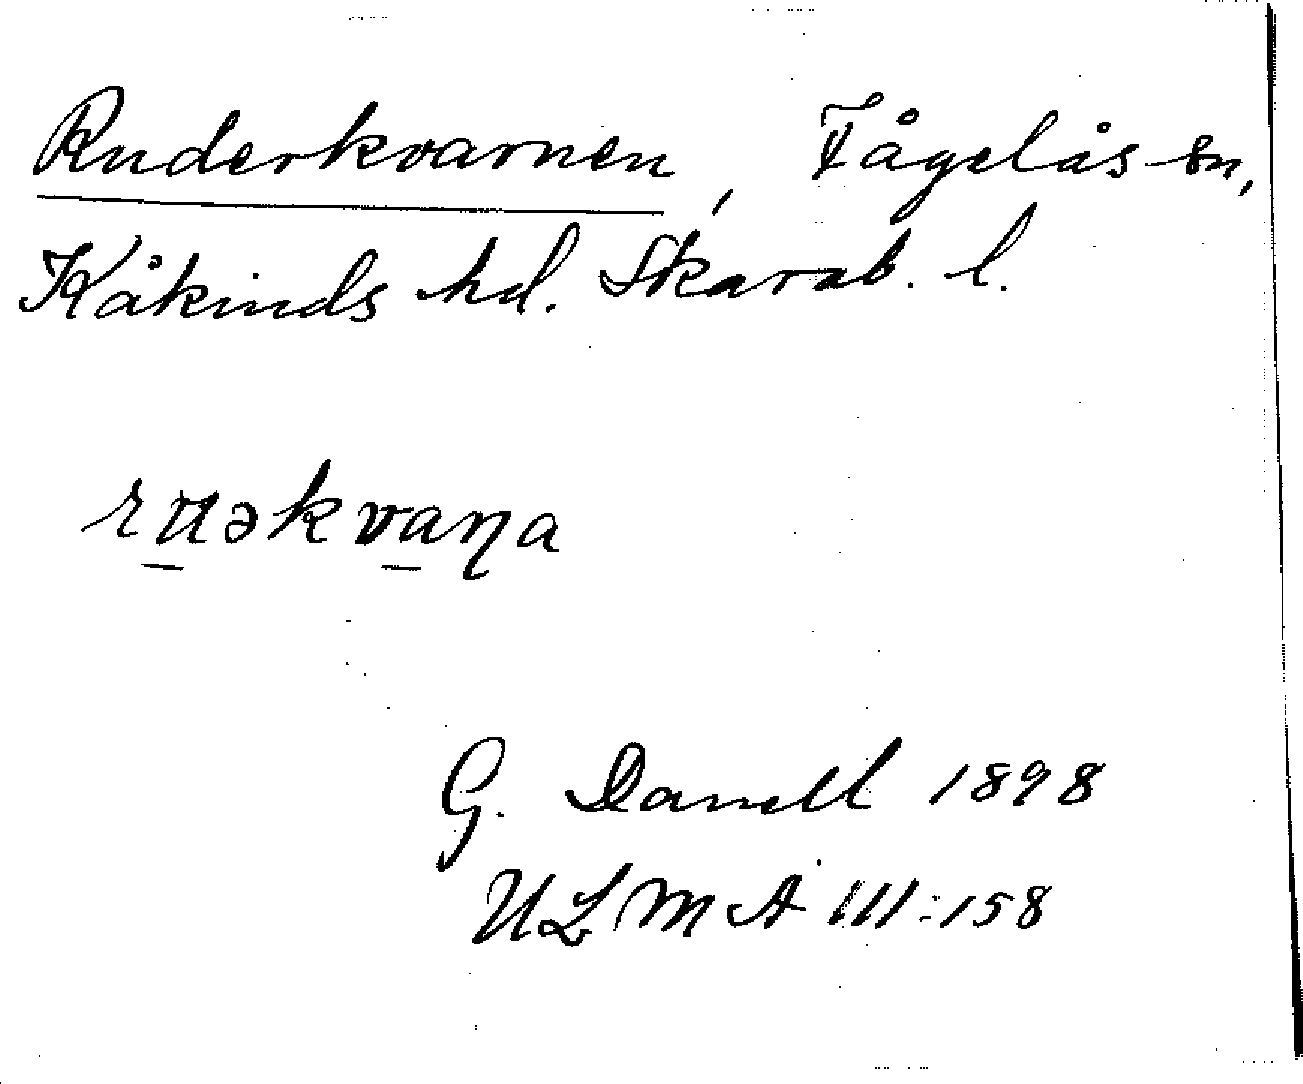 Ruderkvarnen, Fågelås sn,
Kåkinds hd. Skarab. l.
rꭒəkvaɳa
G. Danell 1898
ULMA 111:158